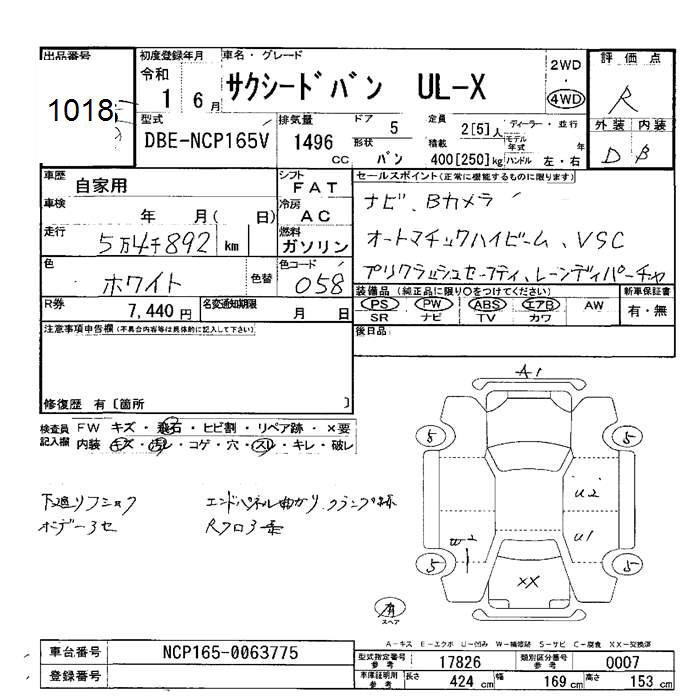 出品番号
1018
初度登録年月
令和
1 6 月
車名・グレード
サクシードバン UL-X
2WD
・
4WD
評価点
R
外装 内装
D B
型式
DBE-NCP165V
排気量
1496
CC
ドア
5
形状
バン
定員 2[5]人
積載 400[250]kg
ディーラー・並行
モデル年式 年
ハンドル 左・右
車歴
自家用
シフト
FAT
車検
年 月( 日)
冷房
AC
走行
5万4千892 km
燃料
ガソリン
色
ホワイト
色替
色コード
058
R券
7,440 円
名変通知期限
月 日
セールスポイント(正常に機能するものに限ります)
ナビ、Bカメラ
オートマチックハイビーム、VSC
プリクラッシュセーフティ、レーンディパーチャ
装備品(純正品に限り○をつけてください)
PS PW ABS エアB AW
SR ナビ TV カワ
新車保証書
有・無
後日品
注意事項申告欄(不具合内容等は具体的に記入して下さい)
修復歴 有〔箇所 〕
検査員記入欄
FW キズ・飛石・ヒビ割・リペア跡・×要
内装 キズ・汚レ・コゲ・穴・スレ・キレ・破レ
下廻リフショク
ボデー3セ
エンドパネル曲がり クランプ跡
Rフロ
A1
5 5
U2
W2
U1
5 5
XX
有
スペア
A-キズ E-エクボ U-凹み W-補修跡 S-サビ C-腐食 XX-交換済
車台番号
NCP165-0063775
登録番号
型式指定番号 参考 17826
類別区分番号 参考 0007
車庫証明用 参考
長さ 424 cm
幅 169 cm
高さ 153 cm